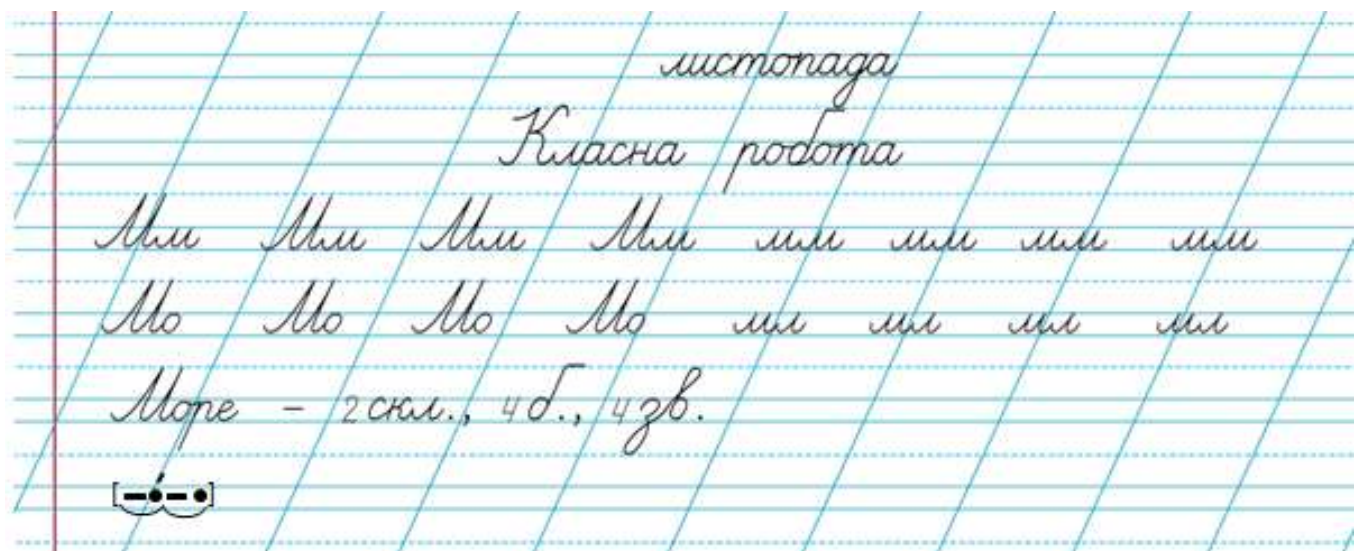 листопада
Класна робота
Мм Мм Мм Мм мм мм мм мм
Мо Мо Мо Мо мл мл мл мл
Море - 2 скл., 4 б., 4 зв.
[–•́–•]